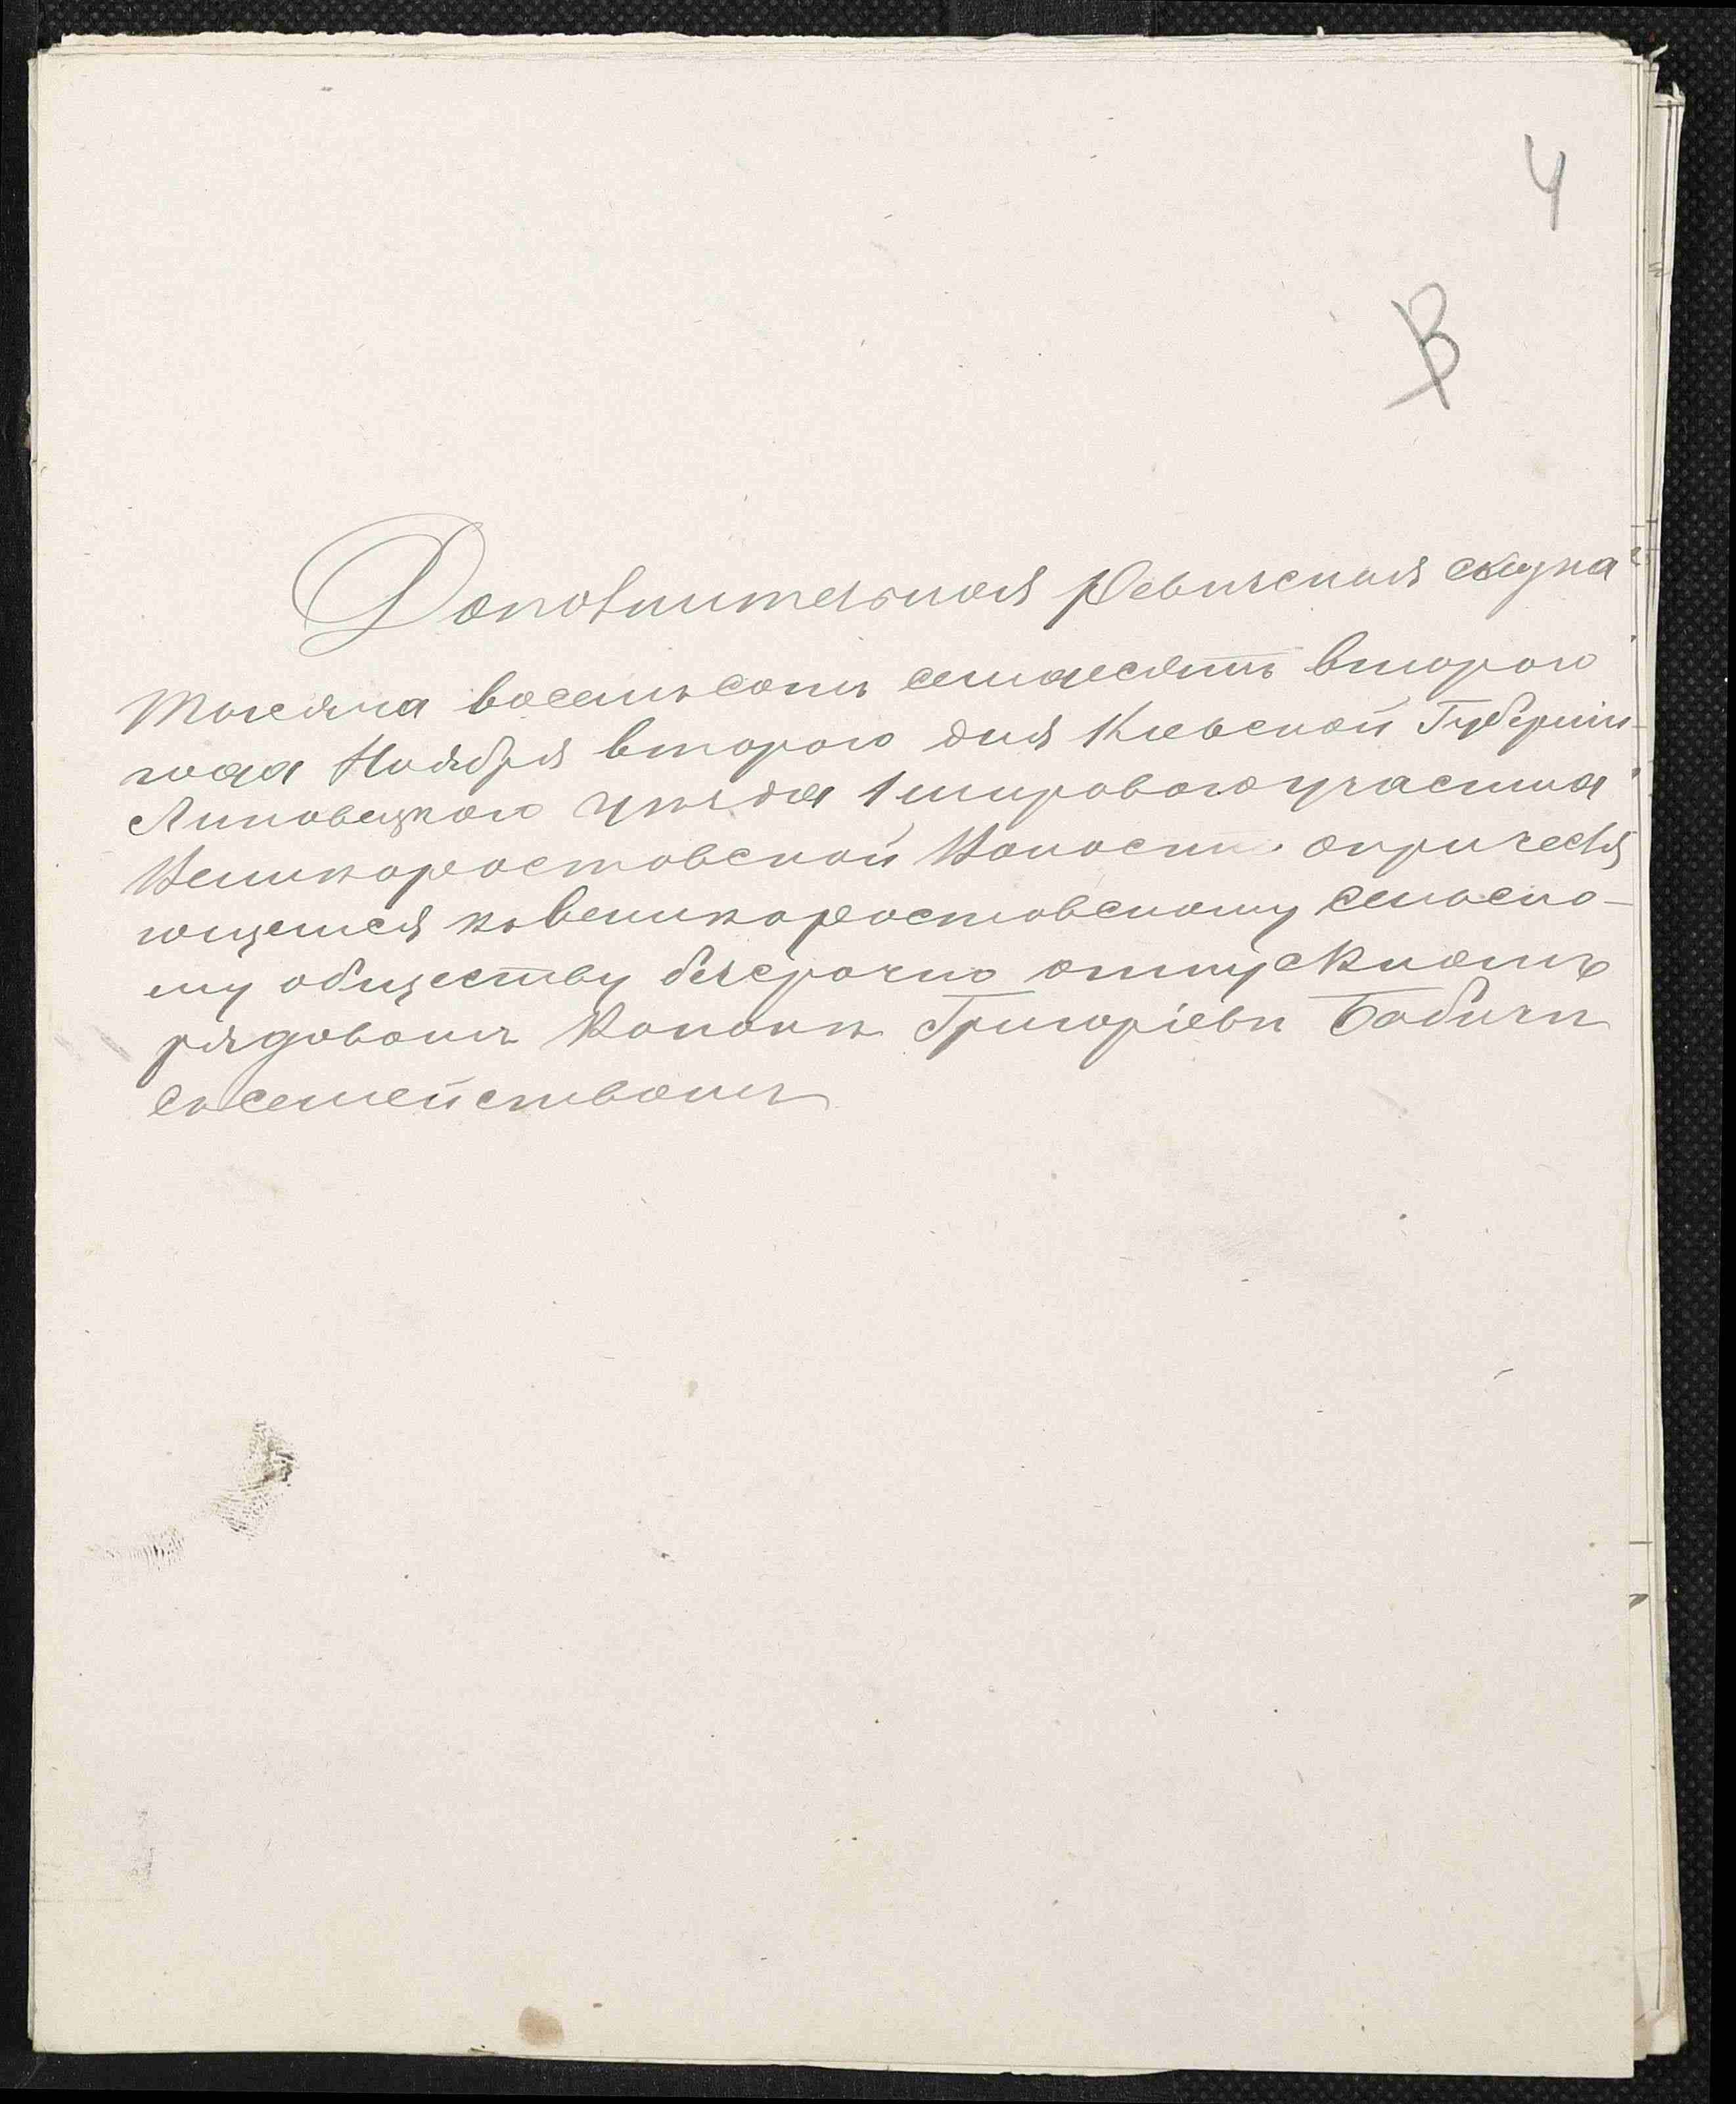 4
В
Дополнительная Ревизская сказка
Тысяча восемьсотъ семдесятъ второго
года Ноября второго дня Кіевской Губерніи
Липовецкого уѣзда 1 мирового участка
Великоростовской Волости о причисля
ющемся къ великоростовскому сельско-
му обществу безсрочно отпускномъ
рядовомъ Григоріевѣ Бабичѣ
съ семействомъ